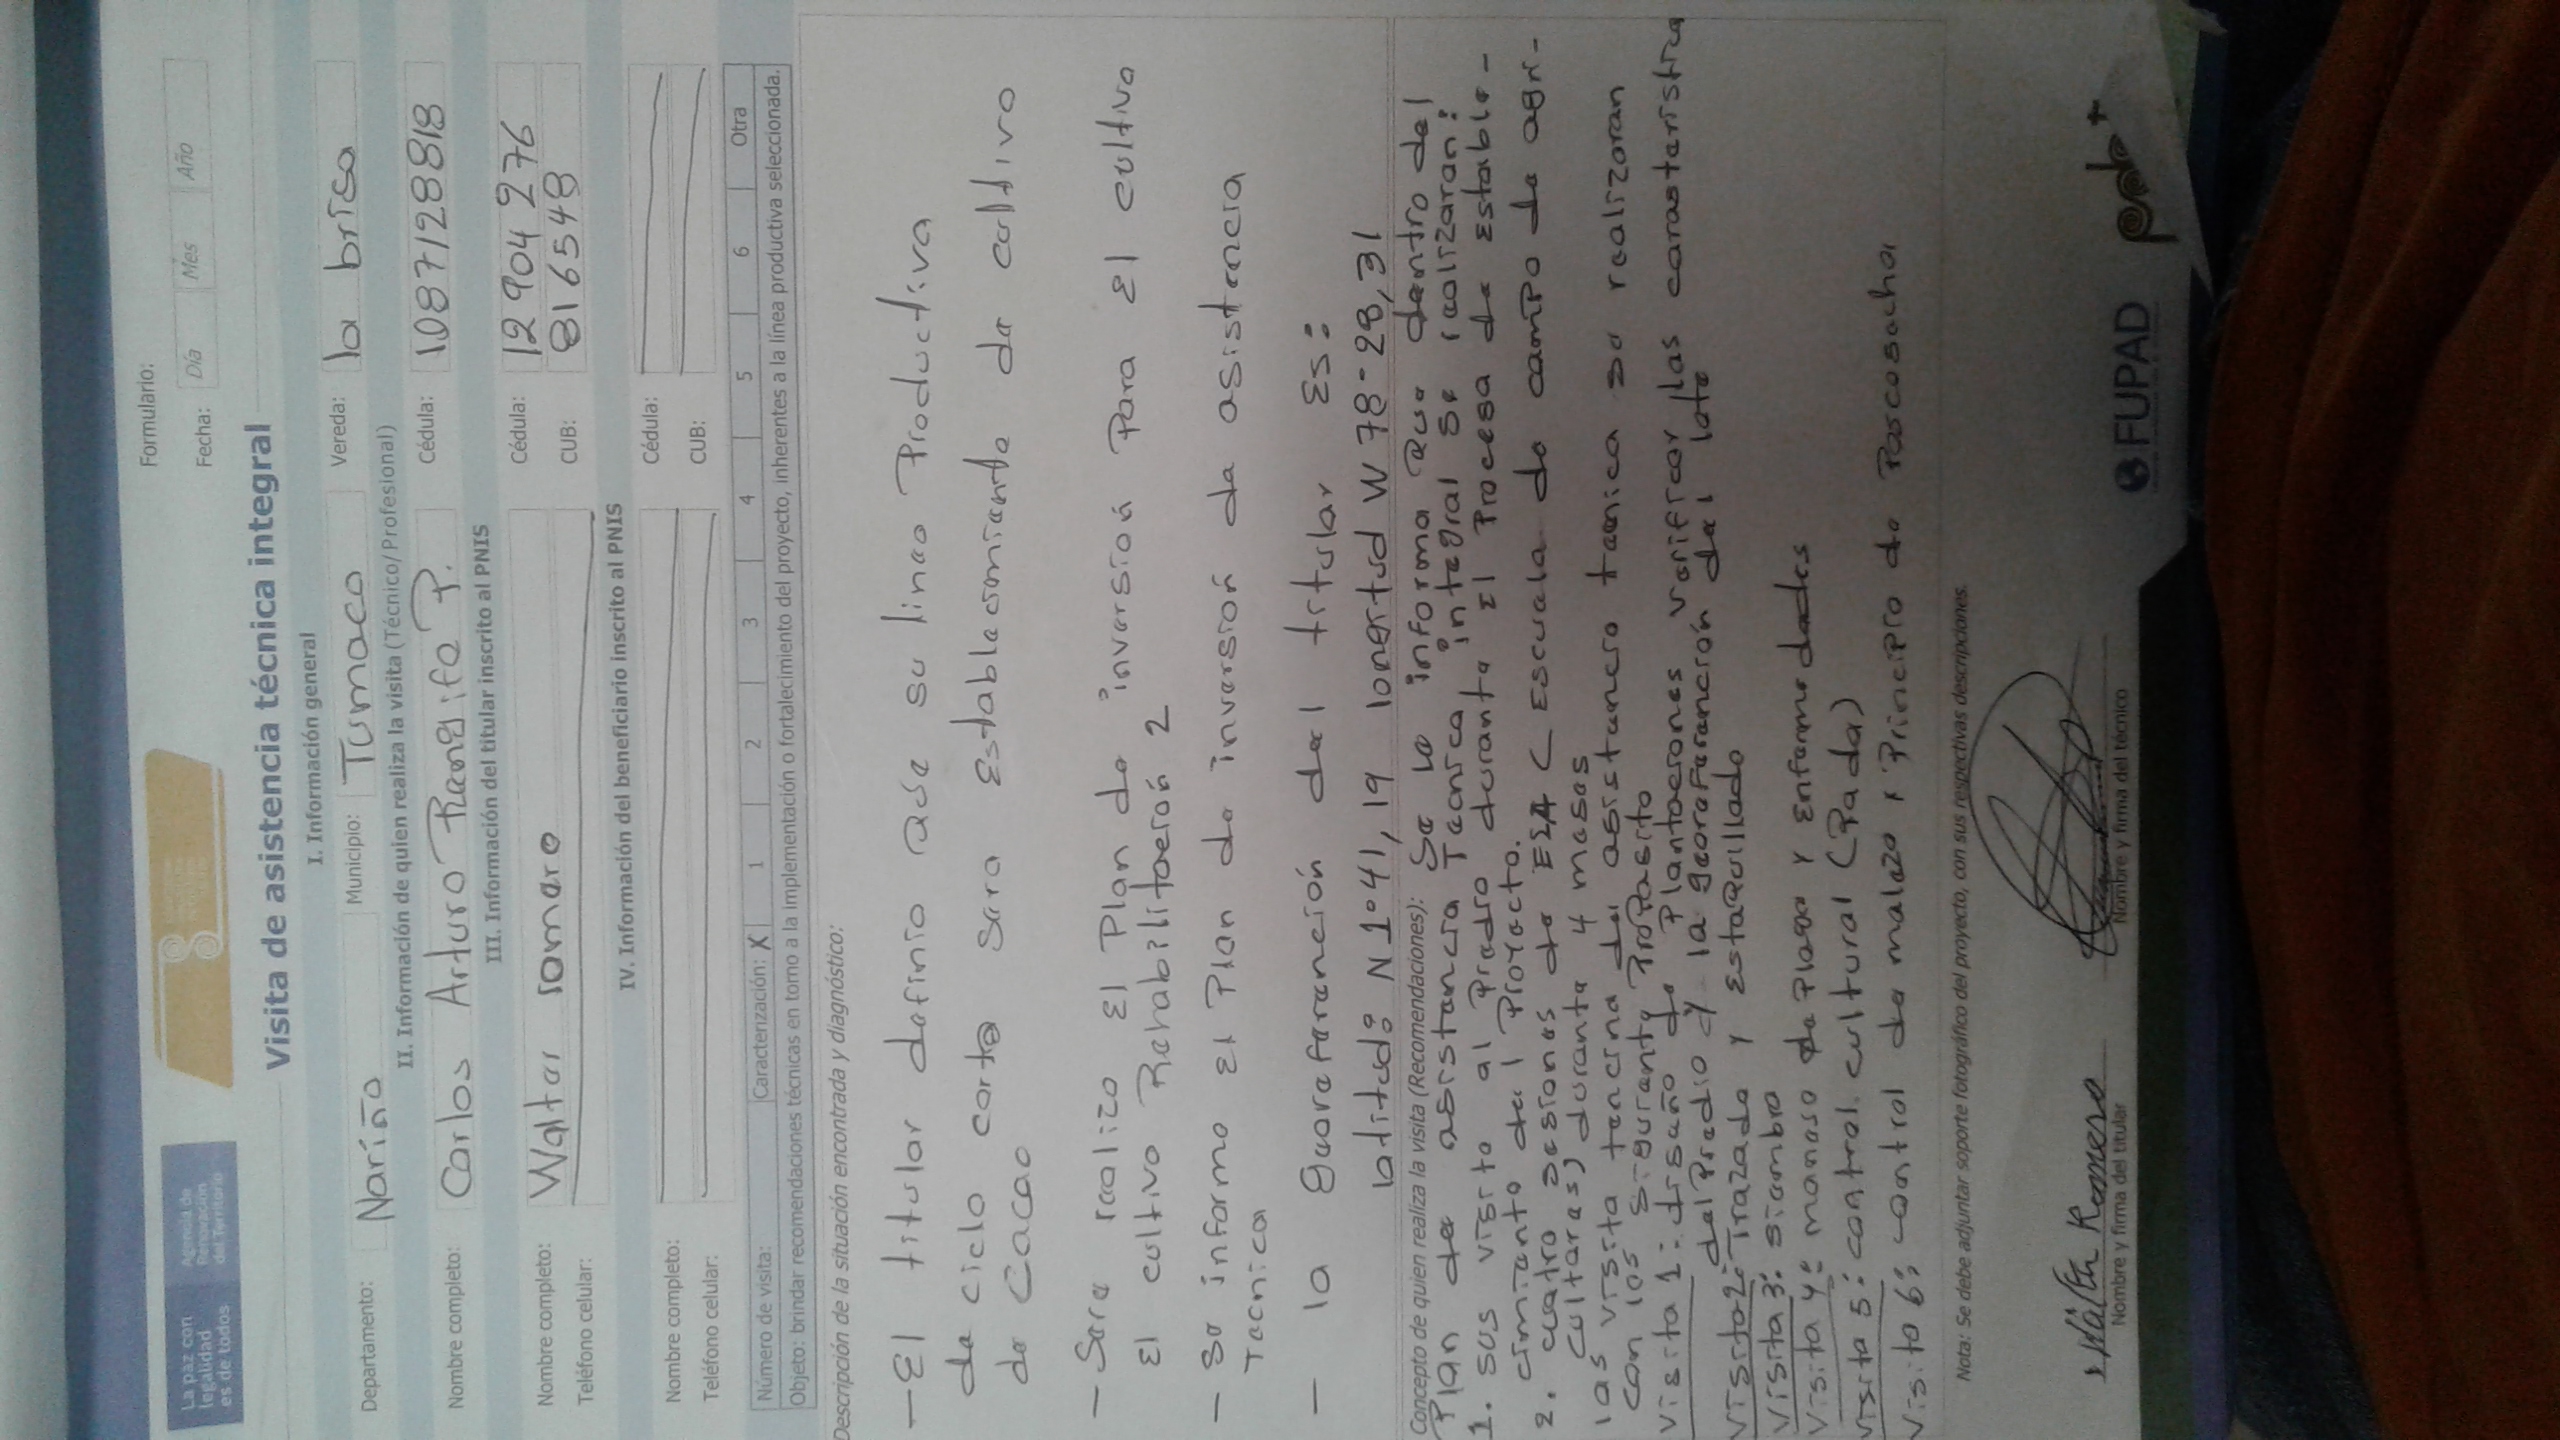 La paz con
legalidad
es de todos
Agencia de
Renovación
del Territorio
Formulario:
Fecha: Día Mes Año
Visita de asistencia técnica integral
I. Información general
Departamento: Nariño Municipio: Tumaco Vereda: la brisa
II. Información de quien realiza la visita (Técnico/Profesional)
Nombre completo: Carlos Arturo Rangifo P. Cédula: 1087128818
III. Información del titular inscrito al PNIS
Nombre completo: Waltar romaro Cédula: 12904276
Teléfono celular: CUB: 816548
IV. Información del beneficiario inscrito al PNIS
Nombre completo: Cédula:
Teléfono celular: CUB:
Número de visita: Caracterización: X 1 2 3 4 5 6 Otra
Objeto: brindar recomendaciones técnicas en torno a la implementación o fortalecimiento del proyecto, inherentes a la línea productiva seleccionada.
Descripción de la situación encontrada y diagnóstico:
- El titular definio que su linea Productiva
de ciclo corto sera Establecimiento de cultivo
de Cacao
- Sera realizo El Plan de inversión Para El cultivo
El cultivo Rehabilitación 2
- se informo El Plan de inversión de asistencia
Tecnica
- la guoraferanción del titular Es:
latitud: N 1°41,19 longitud W 78-28,31
Concepto de quien realiza la visita (Recomendaciones): Se le informa que dentro del
Plan de asistencia Tecnica integral se realizaran:
1. sus visita al Predio durante El Procesa de Estable-
cimiento del Proyecto.
2. cuatro sesiones de ECA ( Escuela de campo de agri-
cultores) durante 4 meses
las visita tencina de asistencia tecnica se realizoran
con los siguiente Proposito
Visita 1: diseño de Plantaciones verificar las carasteristica
del Predio y la georaferanción del lote
Visita 2: Trazado y Estaquillado
Visita 3: siembra
Visita 4: maneso de Plaga y Enfermedades
Visita 5: control cultural (Poda)
Visita 6: control de maleza y Principio de Poscosecha
Nota: Se debe adjuntar soporte fotográfico del proyecto, con sus respectivas descripciones.
Walter Romero
Nombre y firma del titular Nombre y firma del técnico
FUPAD